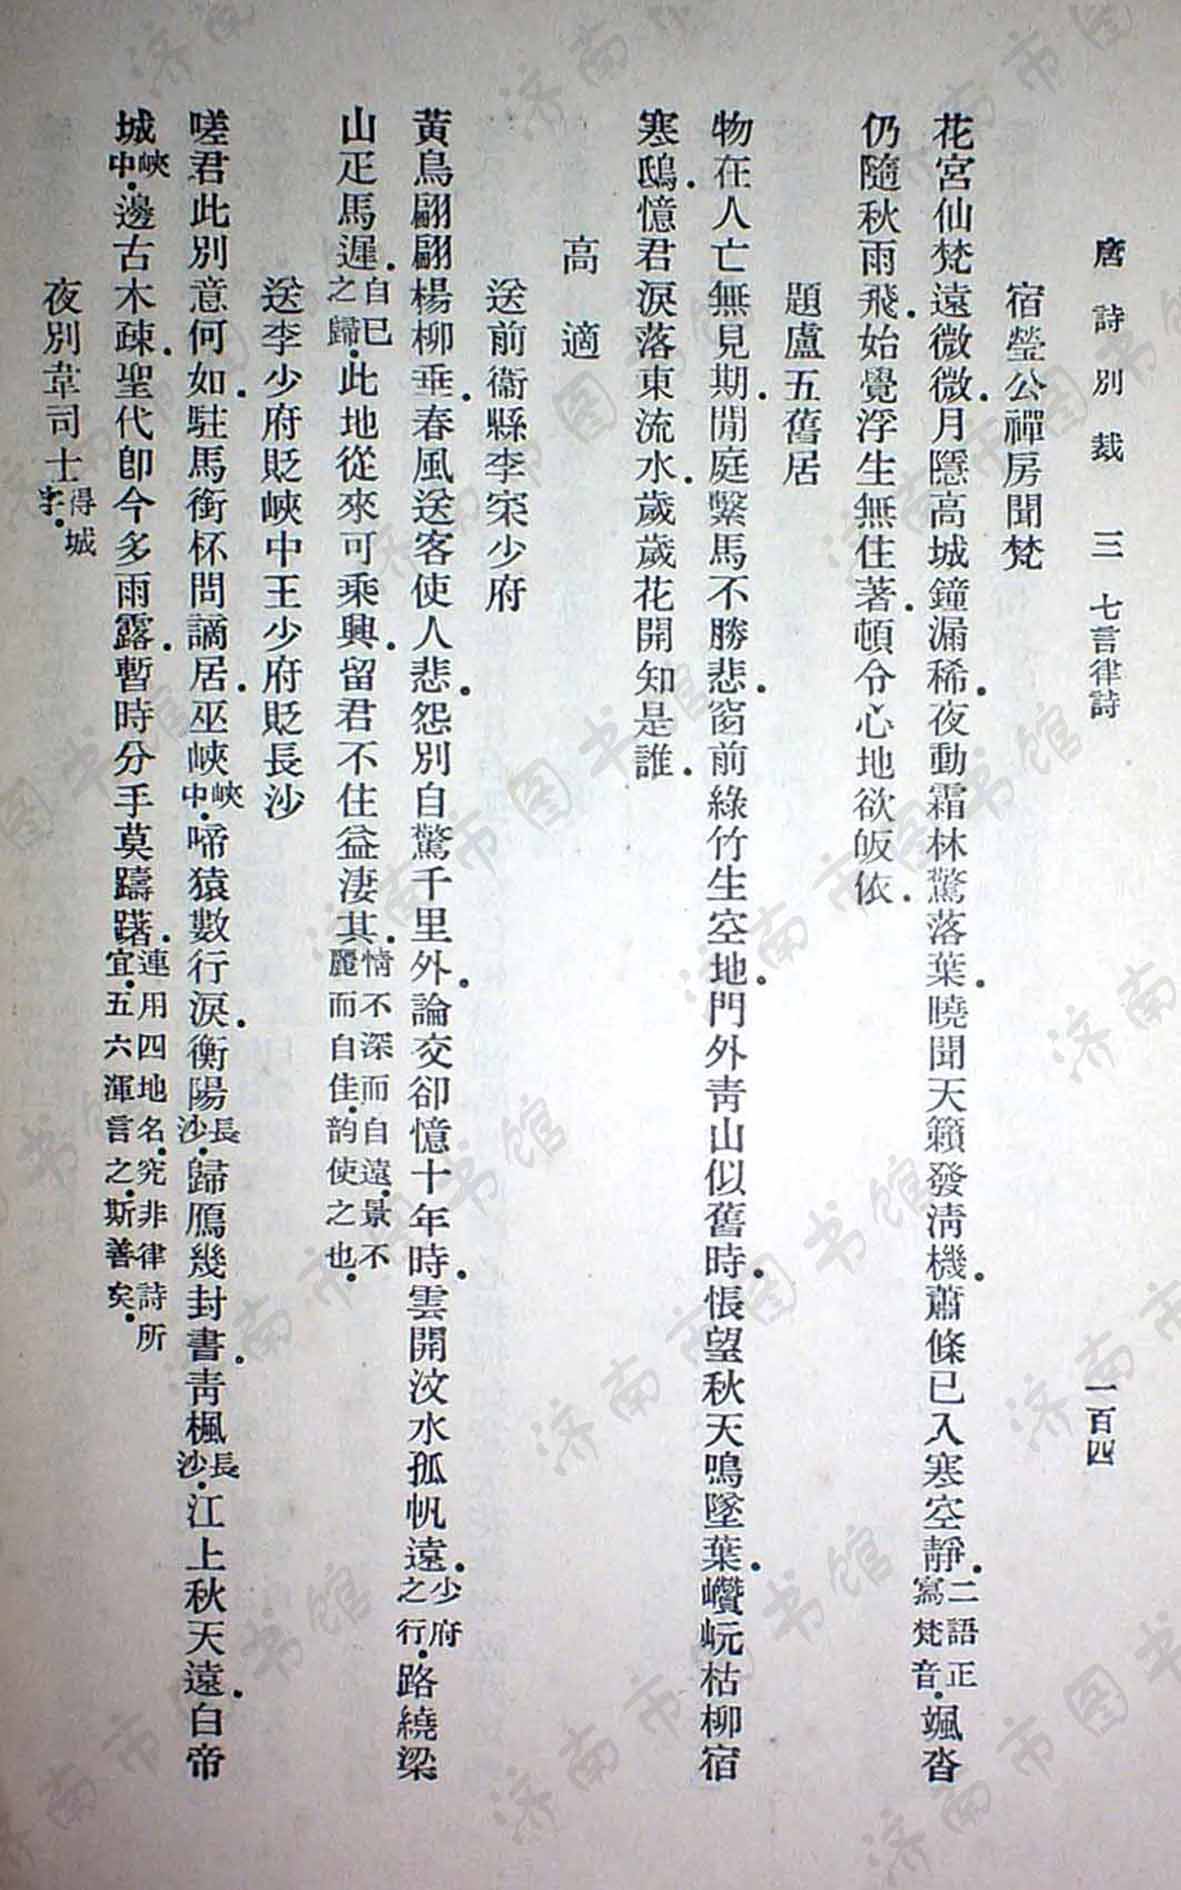 唐詩別裁 三 七言律詩 一百四
宿瑩公禪房聞梵
花宮仙梵遠微微．月隱高城鐘漏稀．夜動霜林驚落葉．曉聞天籟發淸機．蕭條已入寒空靜．二語正寫梵音．颯沓
仍隨秋雨飛．始覺浮生無住著．頓令心地欲皈依．
題盧五舊居
物在人亡無見期．閒庭繫馬不勝悲．窗前綠竹生空地．門外靑山似舊時．悵望秋天鳴墜葉．巑岏枯柳宿
寒鴟．憶君淚落東流水．歲歲花開知是誰．
高適
送前衞縣李寀少府
黃鳥翩翩楊柳垂．春風送客使人悲．怨別自驚千里外．論交卻憶十年時．雲開汶水孤帆遠．少府之行．路繞梁
山疋馬遲．自己之歸．此地從來可乘興．留君不住益淒其．情不深而自遠．景不麗而自佳．韵使之也．
送李少府貶峽中王少府貶長沙
嗟君此別意何如．駐馬銜杯問謫居．巫峽峽中．啼猿數行淚．衡陽長沙．歸鴈幾封書．靑楓長沙．江上秋天遠．白帝
城峽中．邊古木疎．聖代卽今多雨露．暫時分手莫躊躇．連用四地名．究非律詩所宜．五六渾言之．斯善矣．
夜別韋司士得城字．
济南市图书馆